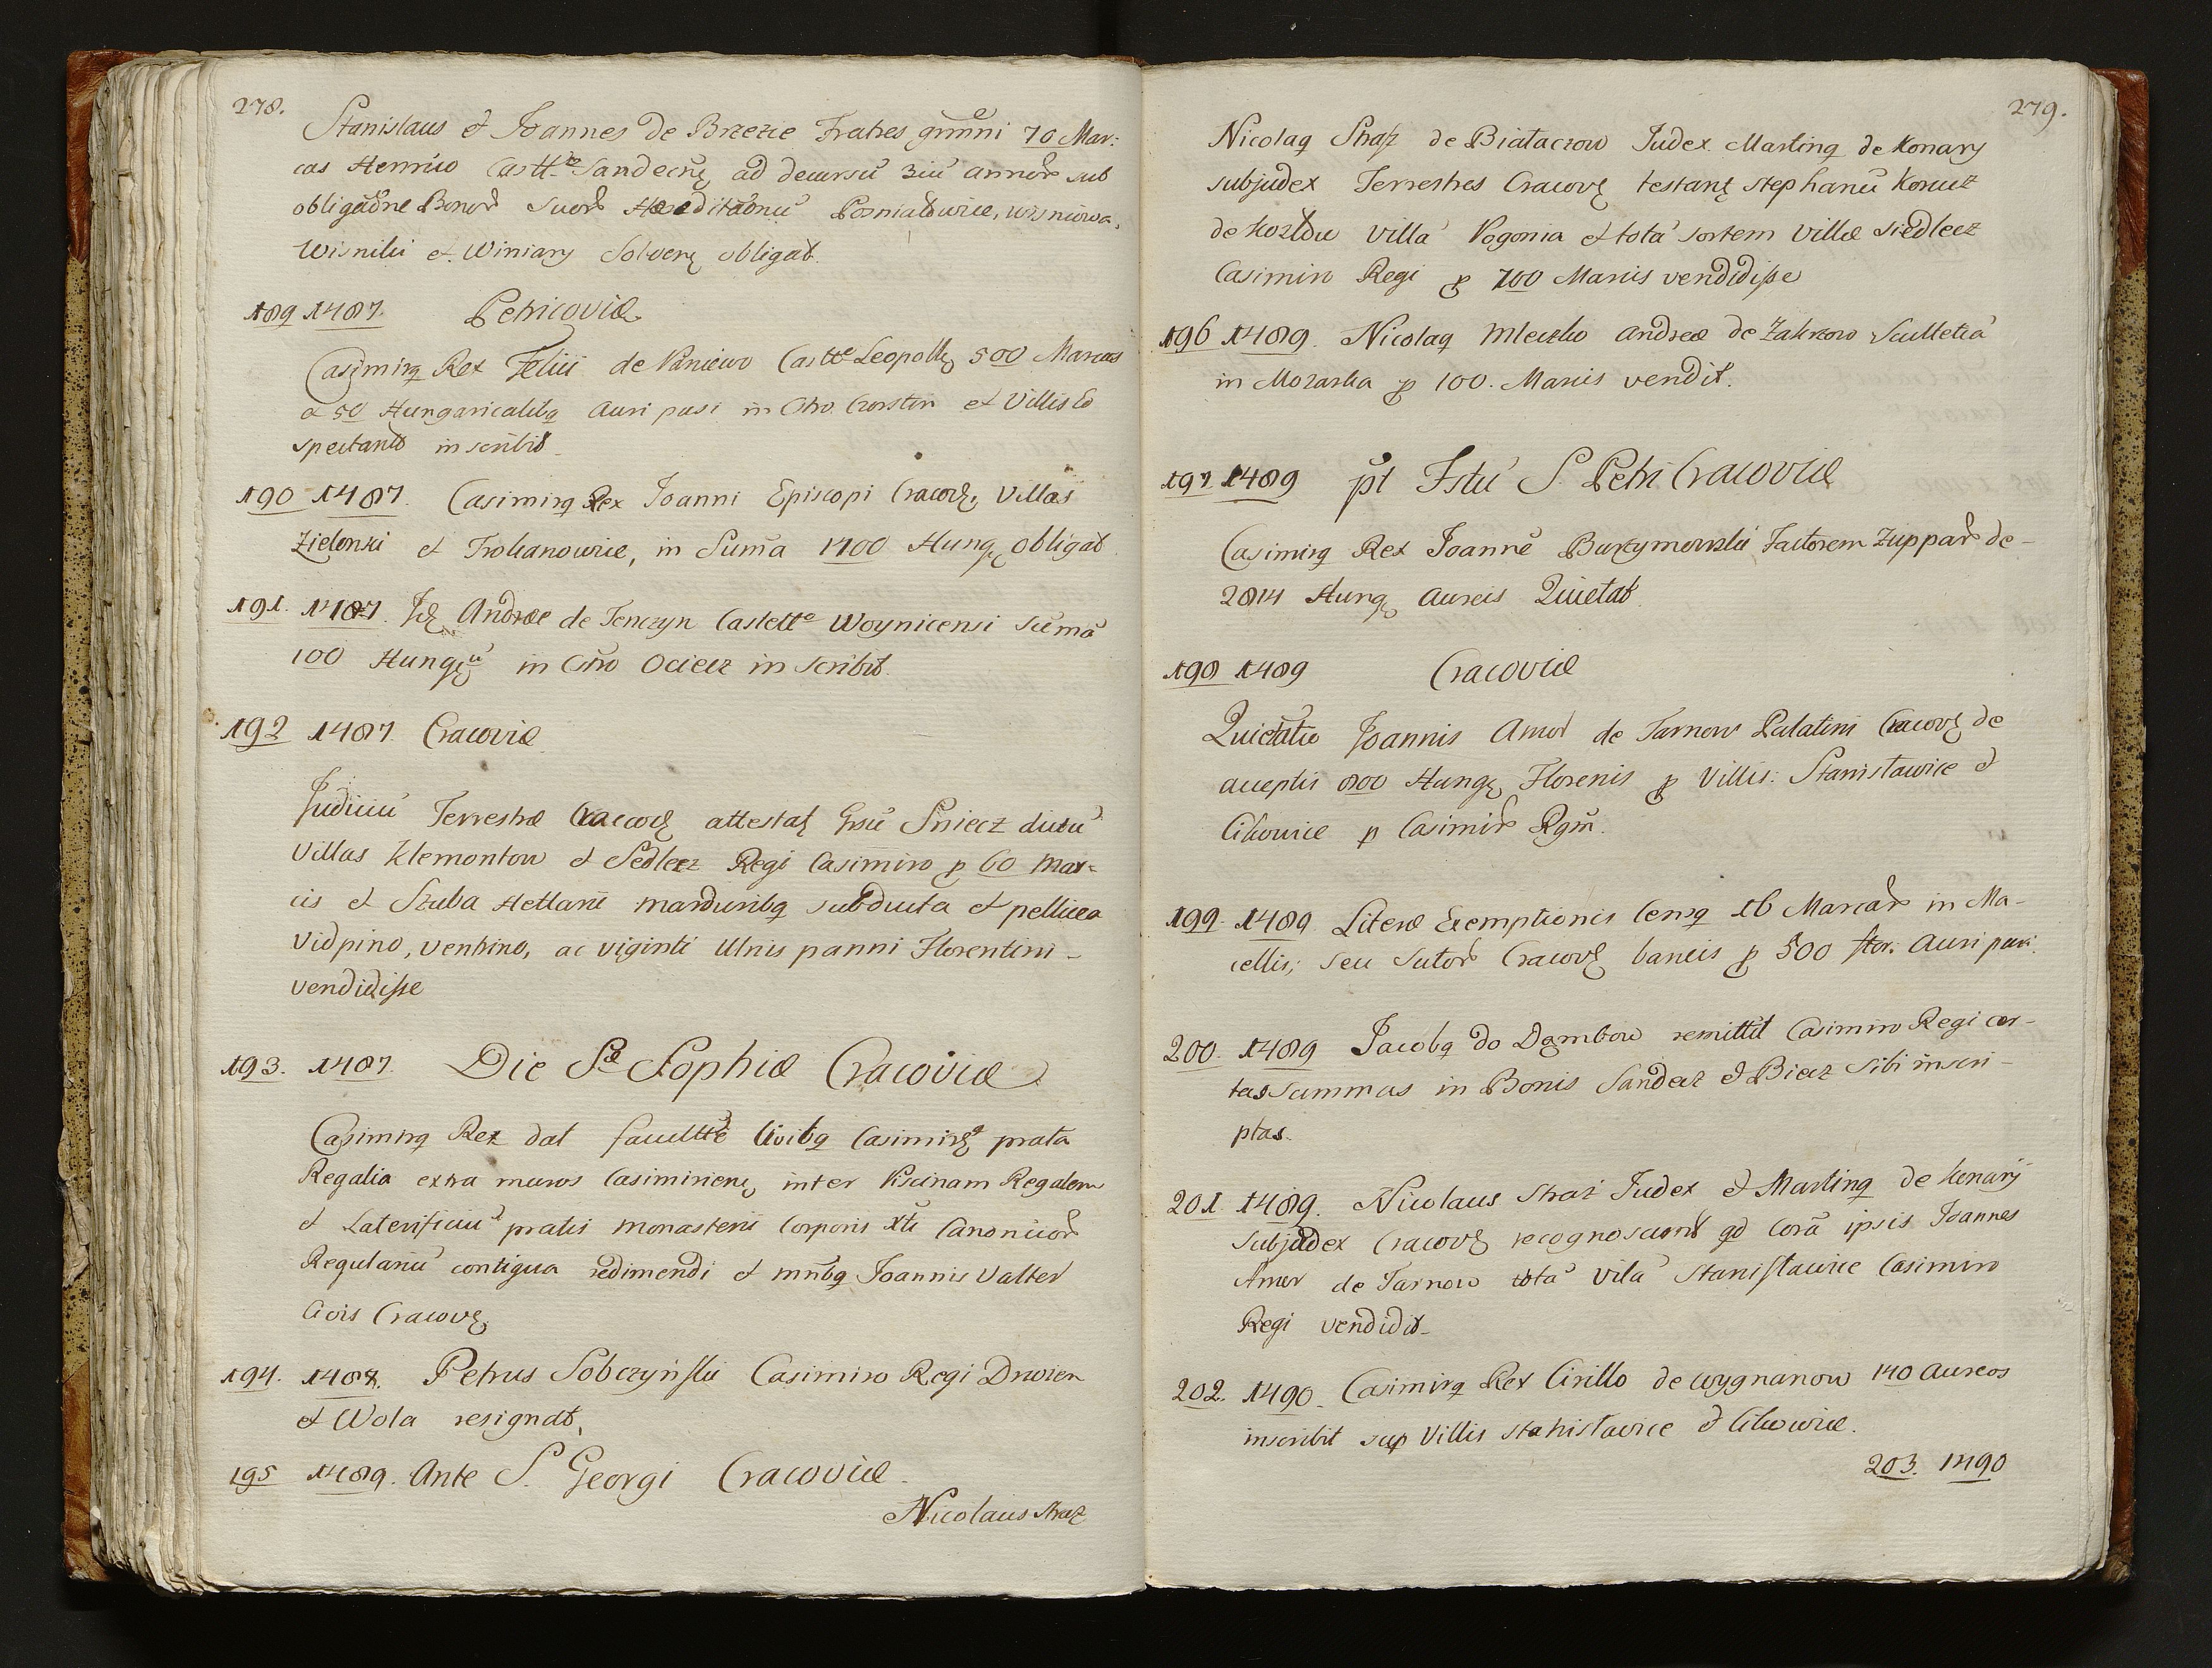 278.
Stanislaus et Joannes de Brzezie Fratres gmni 70 Mar:
cas Henrico Castt. Sandecn ad decursu 3iu annor sub
obligaone Bonor Suor Haereditaonu Pozniatowice, wisniowa,
Wisniki et Winiary Solvere obligat.
189 1487. Petricoviæ
Casimirq Rex Felici de Paniewo Castte Leopoll 500 Marcas
a 50 Hungaricalibq Auri puri in Otro Czorstin et Villis Eo
spectantb inscribit
190 1487. Casimirq Rex Joanni Episcopi Cracov. Villas
Zielonki et Trojanowice, in Suma 1700 Hung. obligat
191. 1487. Id Andreæ de Tenczyn Castell Woynicensi sumā
100 Hung in Ctro Ociecz in scribit
192 1487. Cracoviæ
Judiciu Terrestræ Cracov attestat Grsu Sniecz dictu
Villas Klemontow et Sedlecz Regi Casimiro p 60 Mar=
cis et Szuba Hetlani marduribq subducta et pellicea
Vidpino, ventrino, ac viginti Ulnis panni Florentini -
vendidisse
193. 1487. Die Sæ Sophiæ Cracoviæ
Casimirq Rex dat facultte Civibq Casimir prata
Regalia extra muros Casimirien inter Piscinam Regalem
et Laterificiu pratis monasterii Corporis Xti Canonicor
Regulariu contigua redimendi et mnbq Joannis Valter
Civis Cracov.
194. 1487. Petrus Sobczynski Casimiro Regi Drwien
et Wola resignat,
195 1489. Ante S. Georgi Cracoviæ.
Nicolaus Straz
279.
Nicolaq Strasz de Biataczow Judex Martinq de Konary
subjudex Terrestres Cracov testant Stephanu Konicz
de Kozłow Villā Pogonia et totā sortem Villæ Siedlecz
Casimiro Regi p 700 Marcis vendidisse
196 1489. Nicolaq Mleczko Andreæ de Zakrzow Scultetiā
in Mozarka p 100. Marcis vendit.
197. 1489 pt Fstu S. Petri Cracoviæ
Casimirq Rex Joannē Burzymowski Factorem Zuppar de-
2814 Hung Aureis Quietat.
198 1489 Cracoviæ
Quietatio Joannis Amor de Tarnow Palatini Cracov de
acceptis 800 Hung Florenis p Villis: Stanisławice et
Cikowice p Casimir Rgm.
199. 1489 Literæ Exemptionis Censq 16 Marcar in Ma-
cellis, seu Sutor Cracov bancis p 500 flor. Auri puri.
200. 1489 Jacobq do Dąmbow remittit Casimiro Regi cer-
tas summas in Bonis Sandecz et Biecz Sibi inscri-
ptas.
201. 1489. Nicolaus Straz Judex et Martinq de Konary
Subjudex Cracov recognoscunt qd corā ipsis Joannes
Amor de Tarnow totā vilā Stanisławice Casimiro
Regi vendidit_
202. 1490_ Casimirq Rex Cirillo de wygnanow 140 Aureos
inscribit sup Villis Stanisławice et Cikowice.
203. 1490